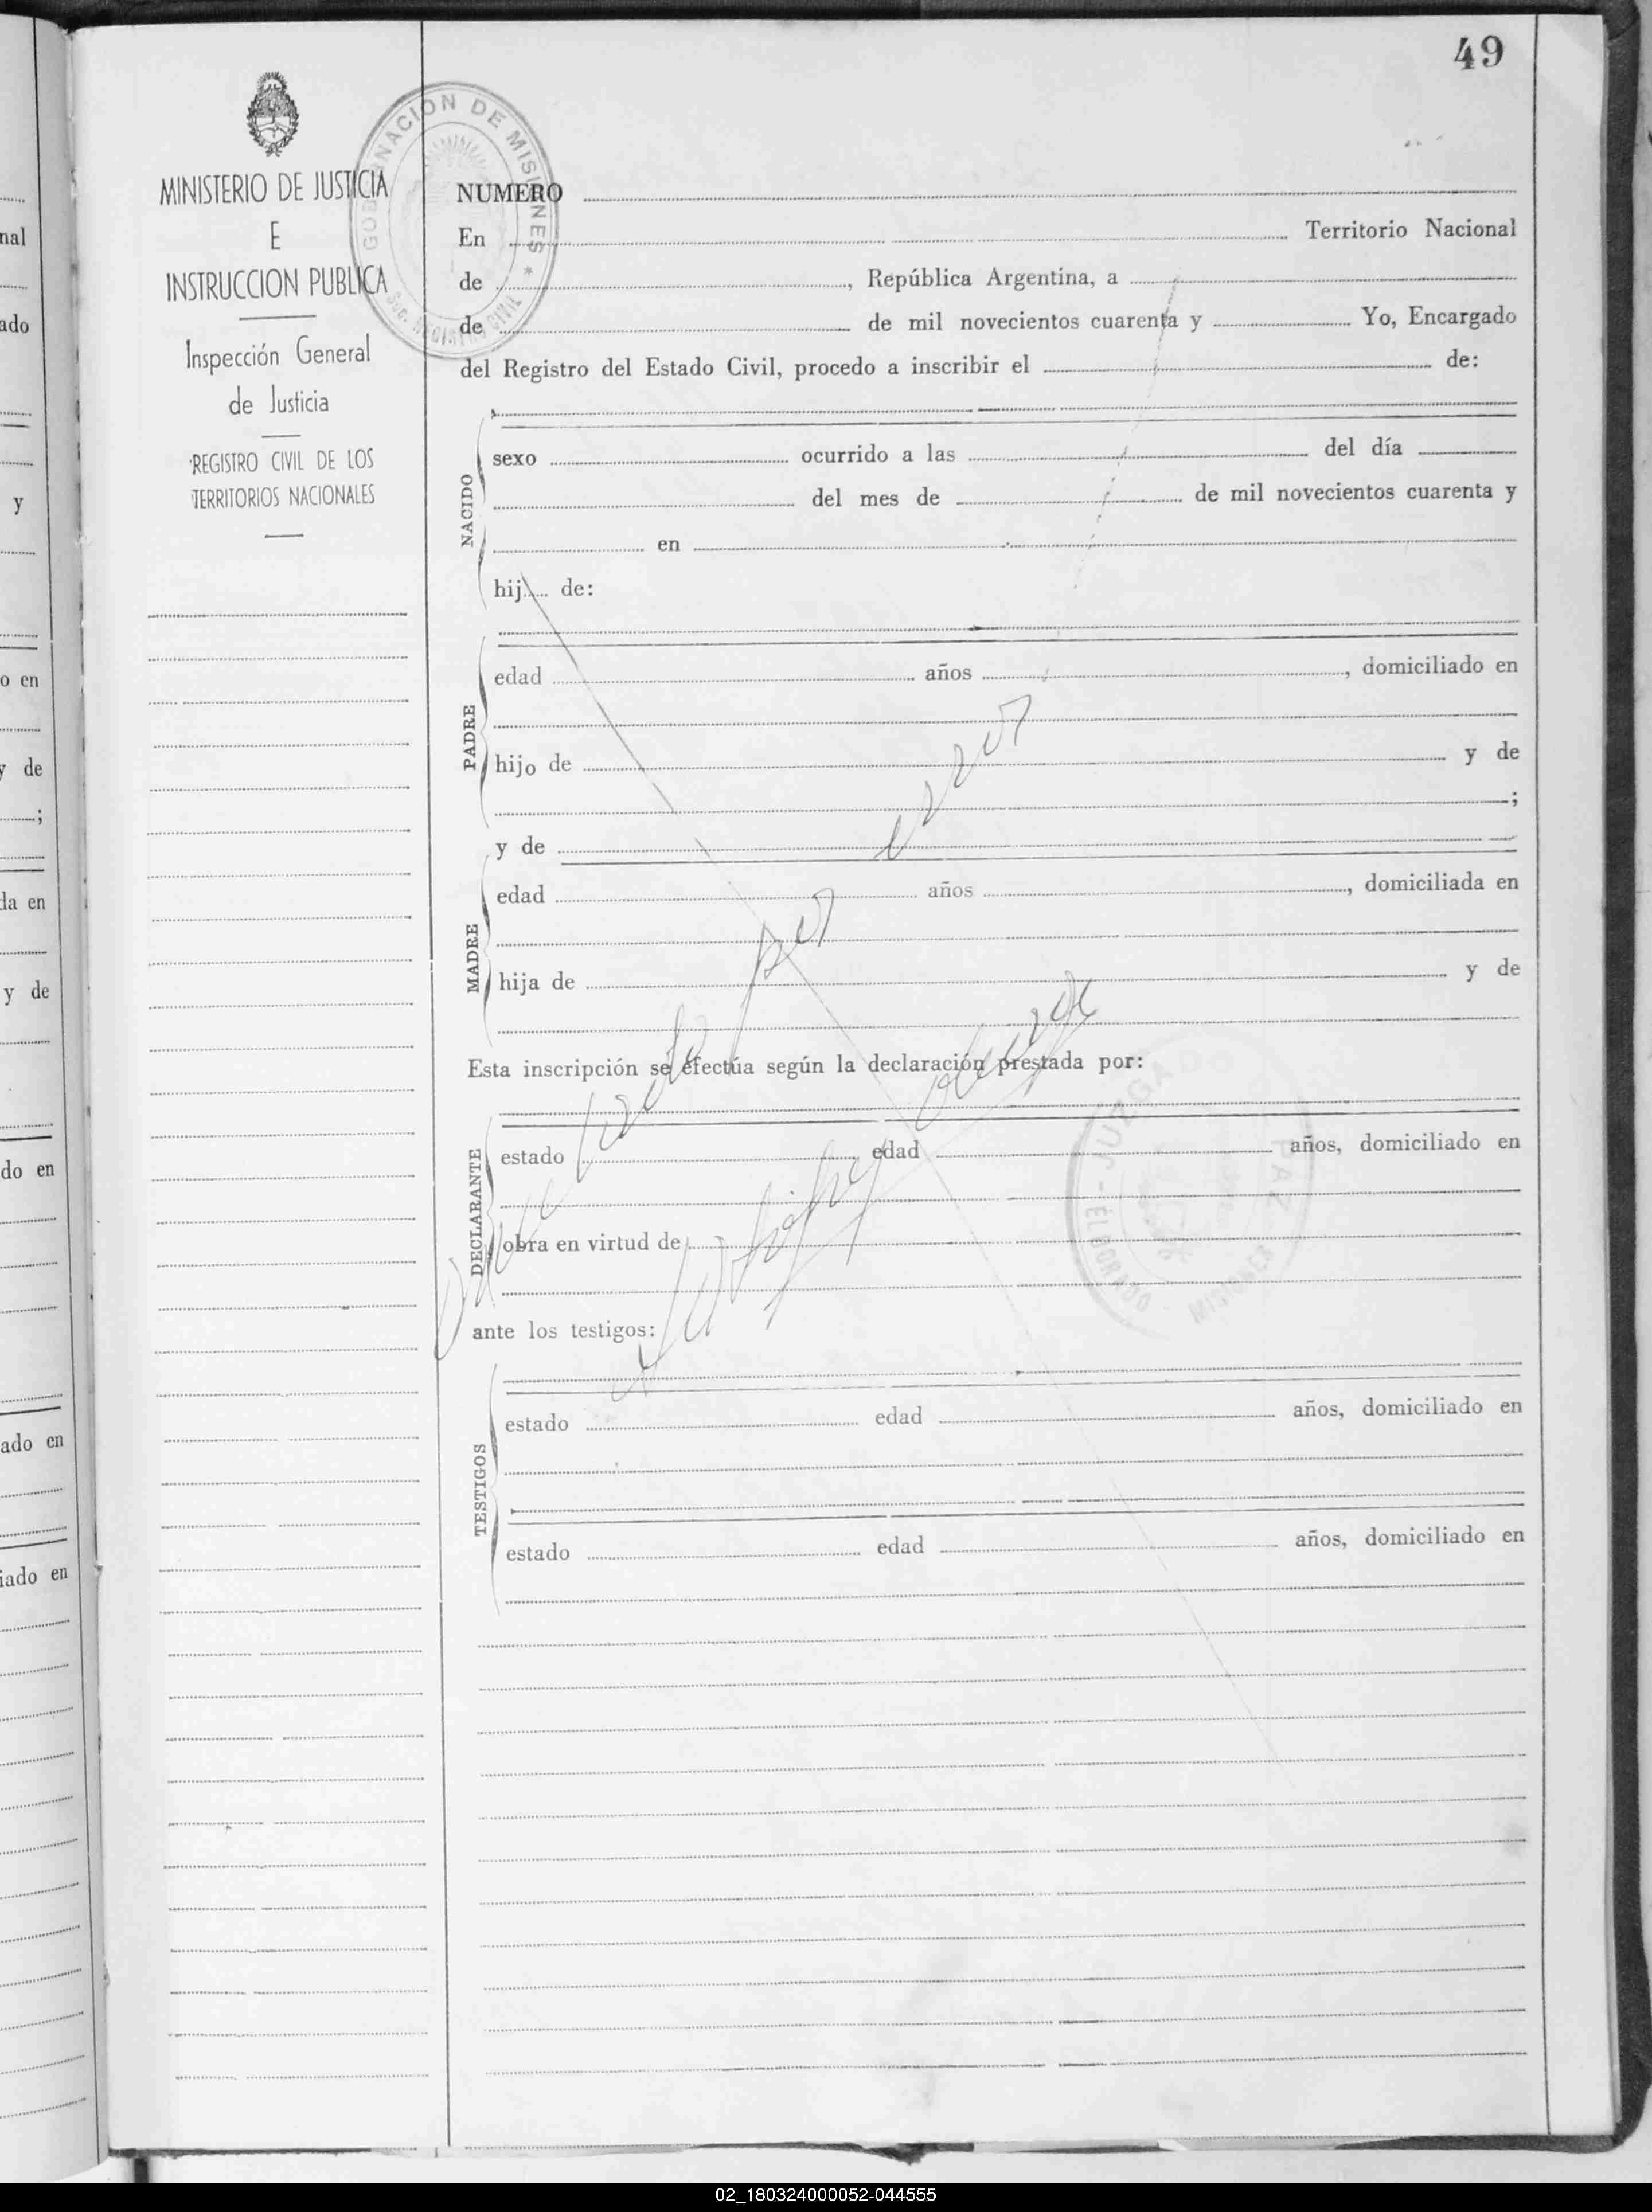 49
MINISTERIO DE JUSTICIA
E
INSTRUCCION PUBLICA
Inspección General
de Justicia
REGISTRO CIVIL DE LOS
TERRITORIOS NACIONALES
GOBERNACION DE MISIONES * REGISTRO CIVIL
NUMERO
En Territorio Nacional
de , República Argentina, a
de de mil novecientos cuarenta y Yo, Encargado
del Registro del Estado Civil, procedo a inscribir el de:
NACIDO
sexo ocurrido a las del día
del mes de de mil novecientos cuarenta y
en
hij..... de:
PADRE
edad años , domiciliado en
hijo de y de
;
y de
MADRE
edad años , domiciliada en
hija de y de
Esta inscripción se efectúa según la declaración prestada por:
DECLARANTE
estado edad años, domiciliado en
obra en virtud de
ante los testigos:
TESTIGOS
estado edad años, domiciliado en
estado edad años, domiciliado en
por error
JUZGADO PAZ - ELDORADO - MISIONES
nal
ado
y
o en
y de
;
da en
y de
do en
ado en
iado en
02_180324000052-044555